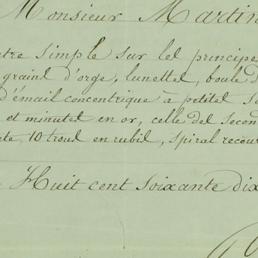 Monsieur Martin
tre simple sur les principe
graint d'orge, lunettes, boule d
d'émail concentrique à petites s
et minutes en or, celle des secon
te, 10 trous en rubis, spiral recou
Huit cent soixante dix